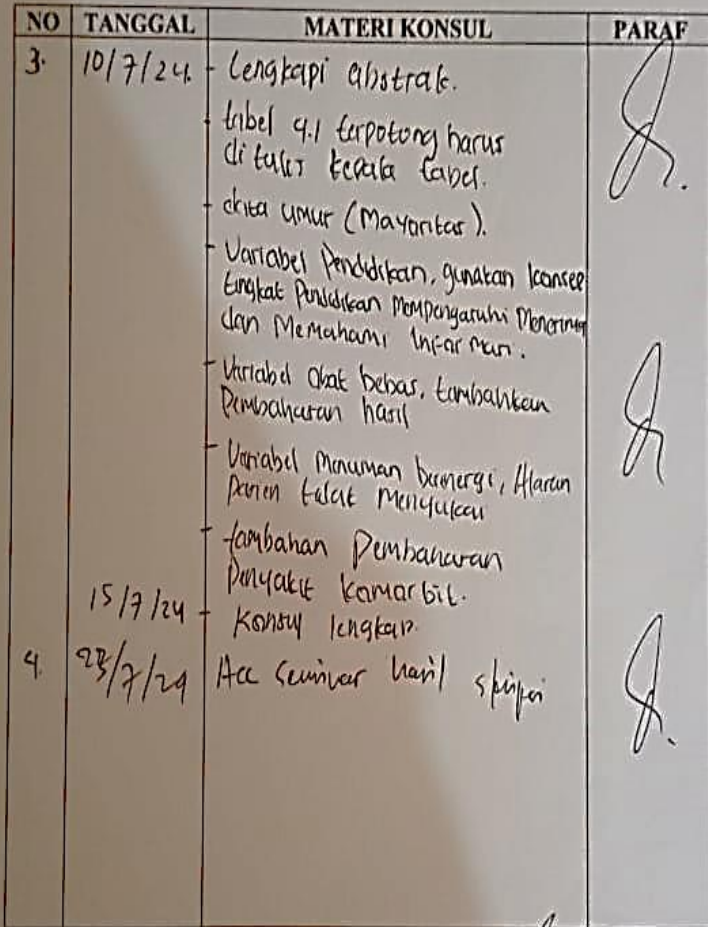 NO TANGGAL MATERI KONSUL PARAF
3. 10/7/24. - Lengkapi abstrak.
- tabel 4.1 terpotong harus
di tulis kepala tabel.
- data umur (Mayoritas).
- Variabel Pendidikan, gunakan konsep
tingkat Pendidikan Mempengaruhi Menerima
dan Memahami Informasi.
- Variabel Obat bebas, tambahkan
Pembahasan hasil
- Variabel Minuman berenergi, Alasan
Pasien Menyukai
- tambahan Pembahasan
Penyakit Komorbit.
15/7/24 - Konsul lengkap.
4. /7/24 Acc Seminar hasil skripsi